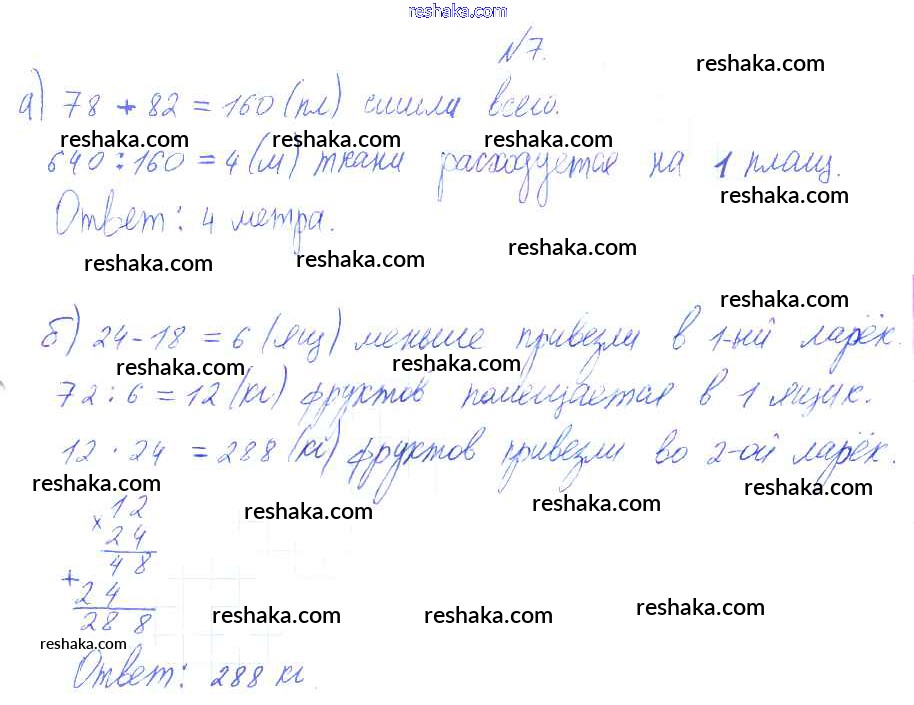 reshaka.com
№7.
reshaka.com
а) 78 + 82 = 160 (пл) сшила всего.
reshaka.com reshaka.com reshaka.com
640 : 160 = 4 (м) ткани расходуется на 1 плащ.
reshaka.com
Ответ: 4 метра.
reshaka.com reshaka.com reshaka.com
reshaka.com
б) 24 - 18 = 6 (ящ) меньше привезли в 1-ый ларёк.
reshaka.com reshaka.com
72 : 6 = 12 (кг) фруктов помещается в 1 ящик.
12 · 24 = 288 (кг) фруктов привезли во 2-ой ларёк.
reshaka.com reshaka.com reshaka.com reshaka.com
× 12
24
48
+ 24
288
reshaka.com reshaka.com reshaka.com
reshaka.com
Ответ: 288 кг